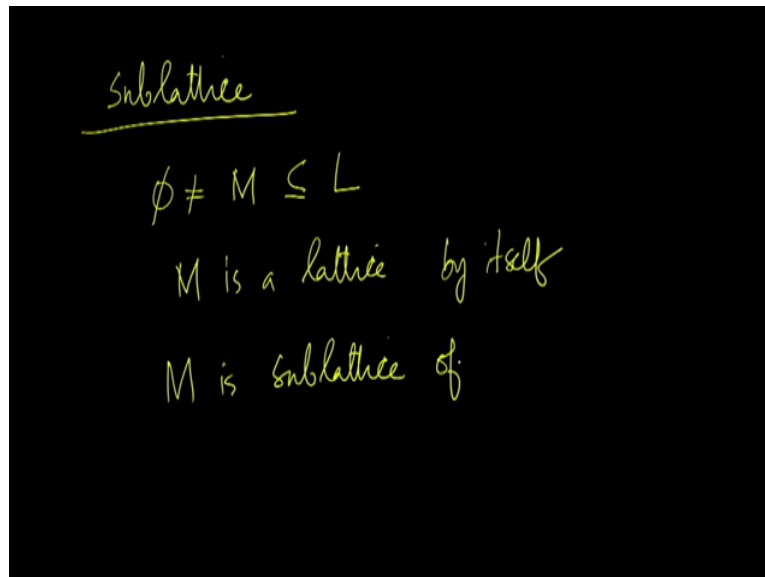 Sublattice
ϕ ≠ M ⊆ L
M is a lattice by itself
M is sublattice of